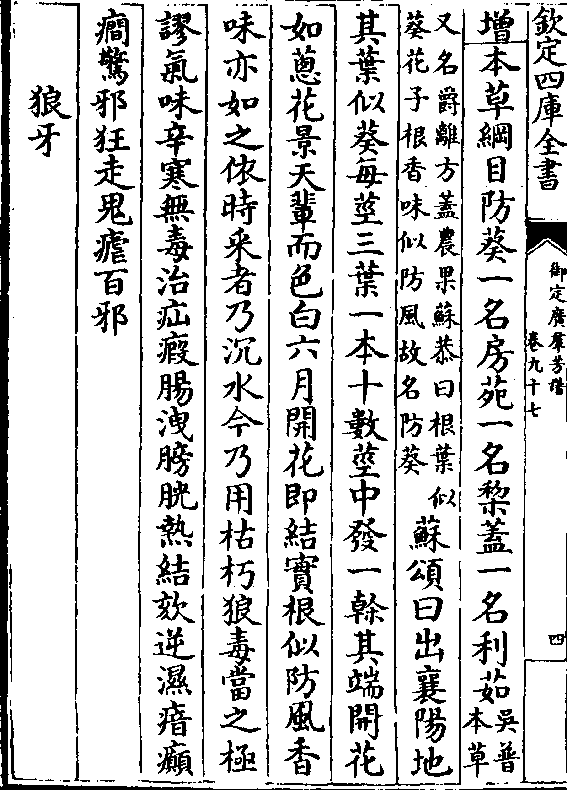 欽定四庫全書
御定廣羣芳譜
卷九十七
四
增本草綱目防葵一名房苑一名棃蓋一名利茹吳普本草
又名爵離方蓋農果蘇恭曰根葉似葵花子根香味似防風故名防葵蘇頌曰出襄陽地
其葉似葵每莖三葉一本十數莖中發一榦其端開花
如蔥花景天輩而色白六月開花即結實根似防風香
味亦如之依時采者乃沉水今乃用枯朽狼毒當之極
謬氣味辛寒無毒治疝瘕腸洩膀胱熱結欬逆濕瘖癲
癎驚邪狂走鬼瘧百邪
狼牙